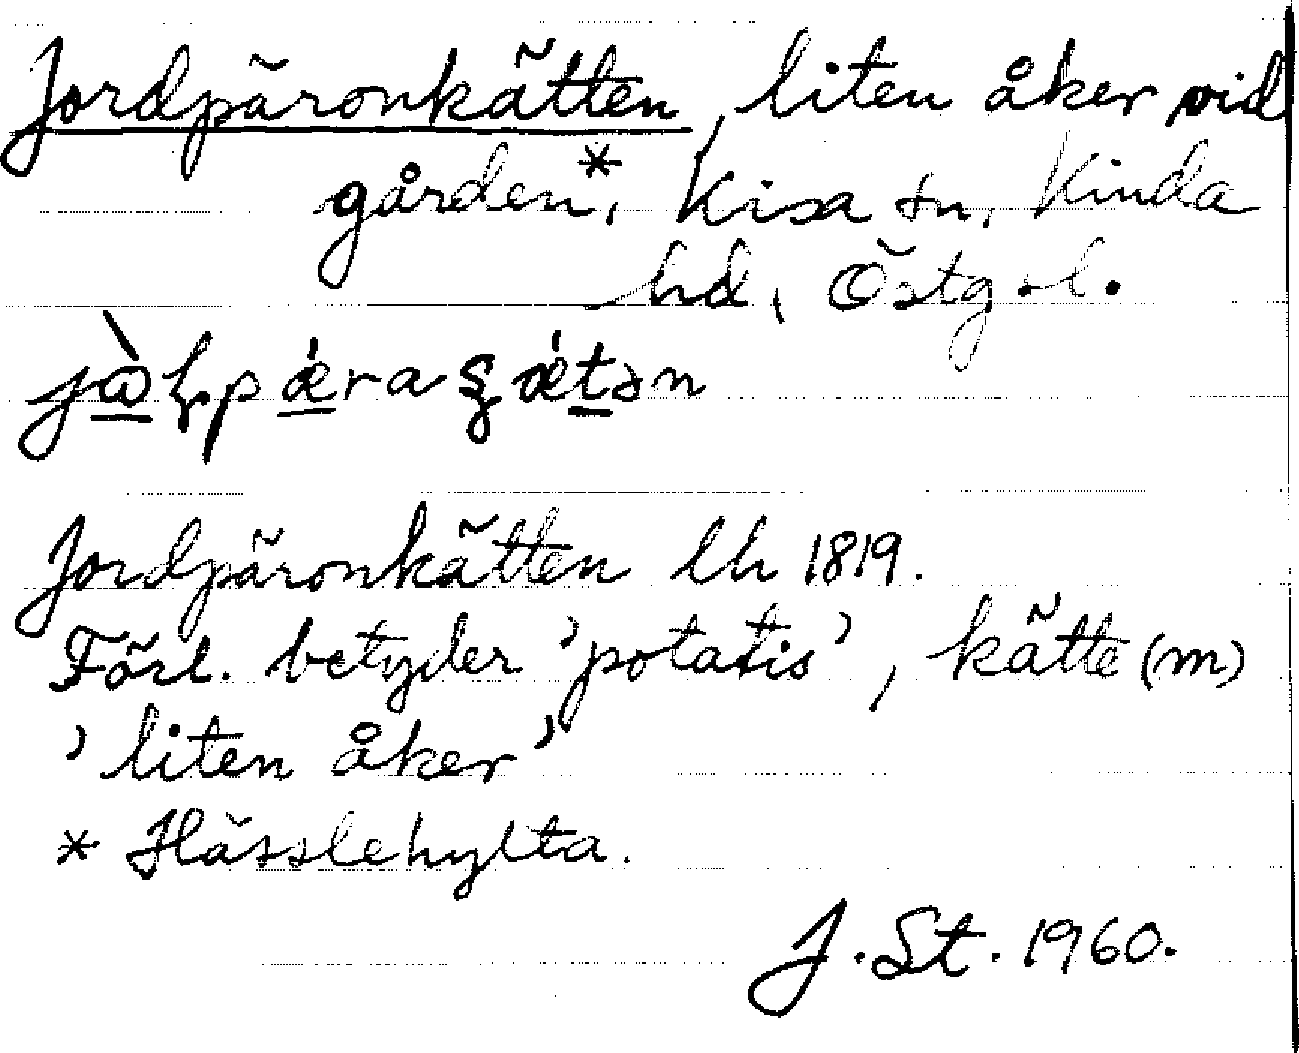 Jordpäronkätten, liten åker vid
gården*, Kisa sn, Kinda
hd, Östg.l.
jɷ̀ꞕpǽraʂǽtən
Jordpäronkätten lh 1819.
Förl. betyder 'potatis', kätte (m)
'liten åker'
* Hässlehylta.
J. St. 1960.